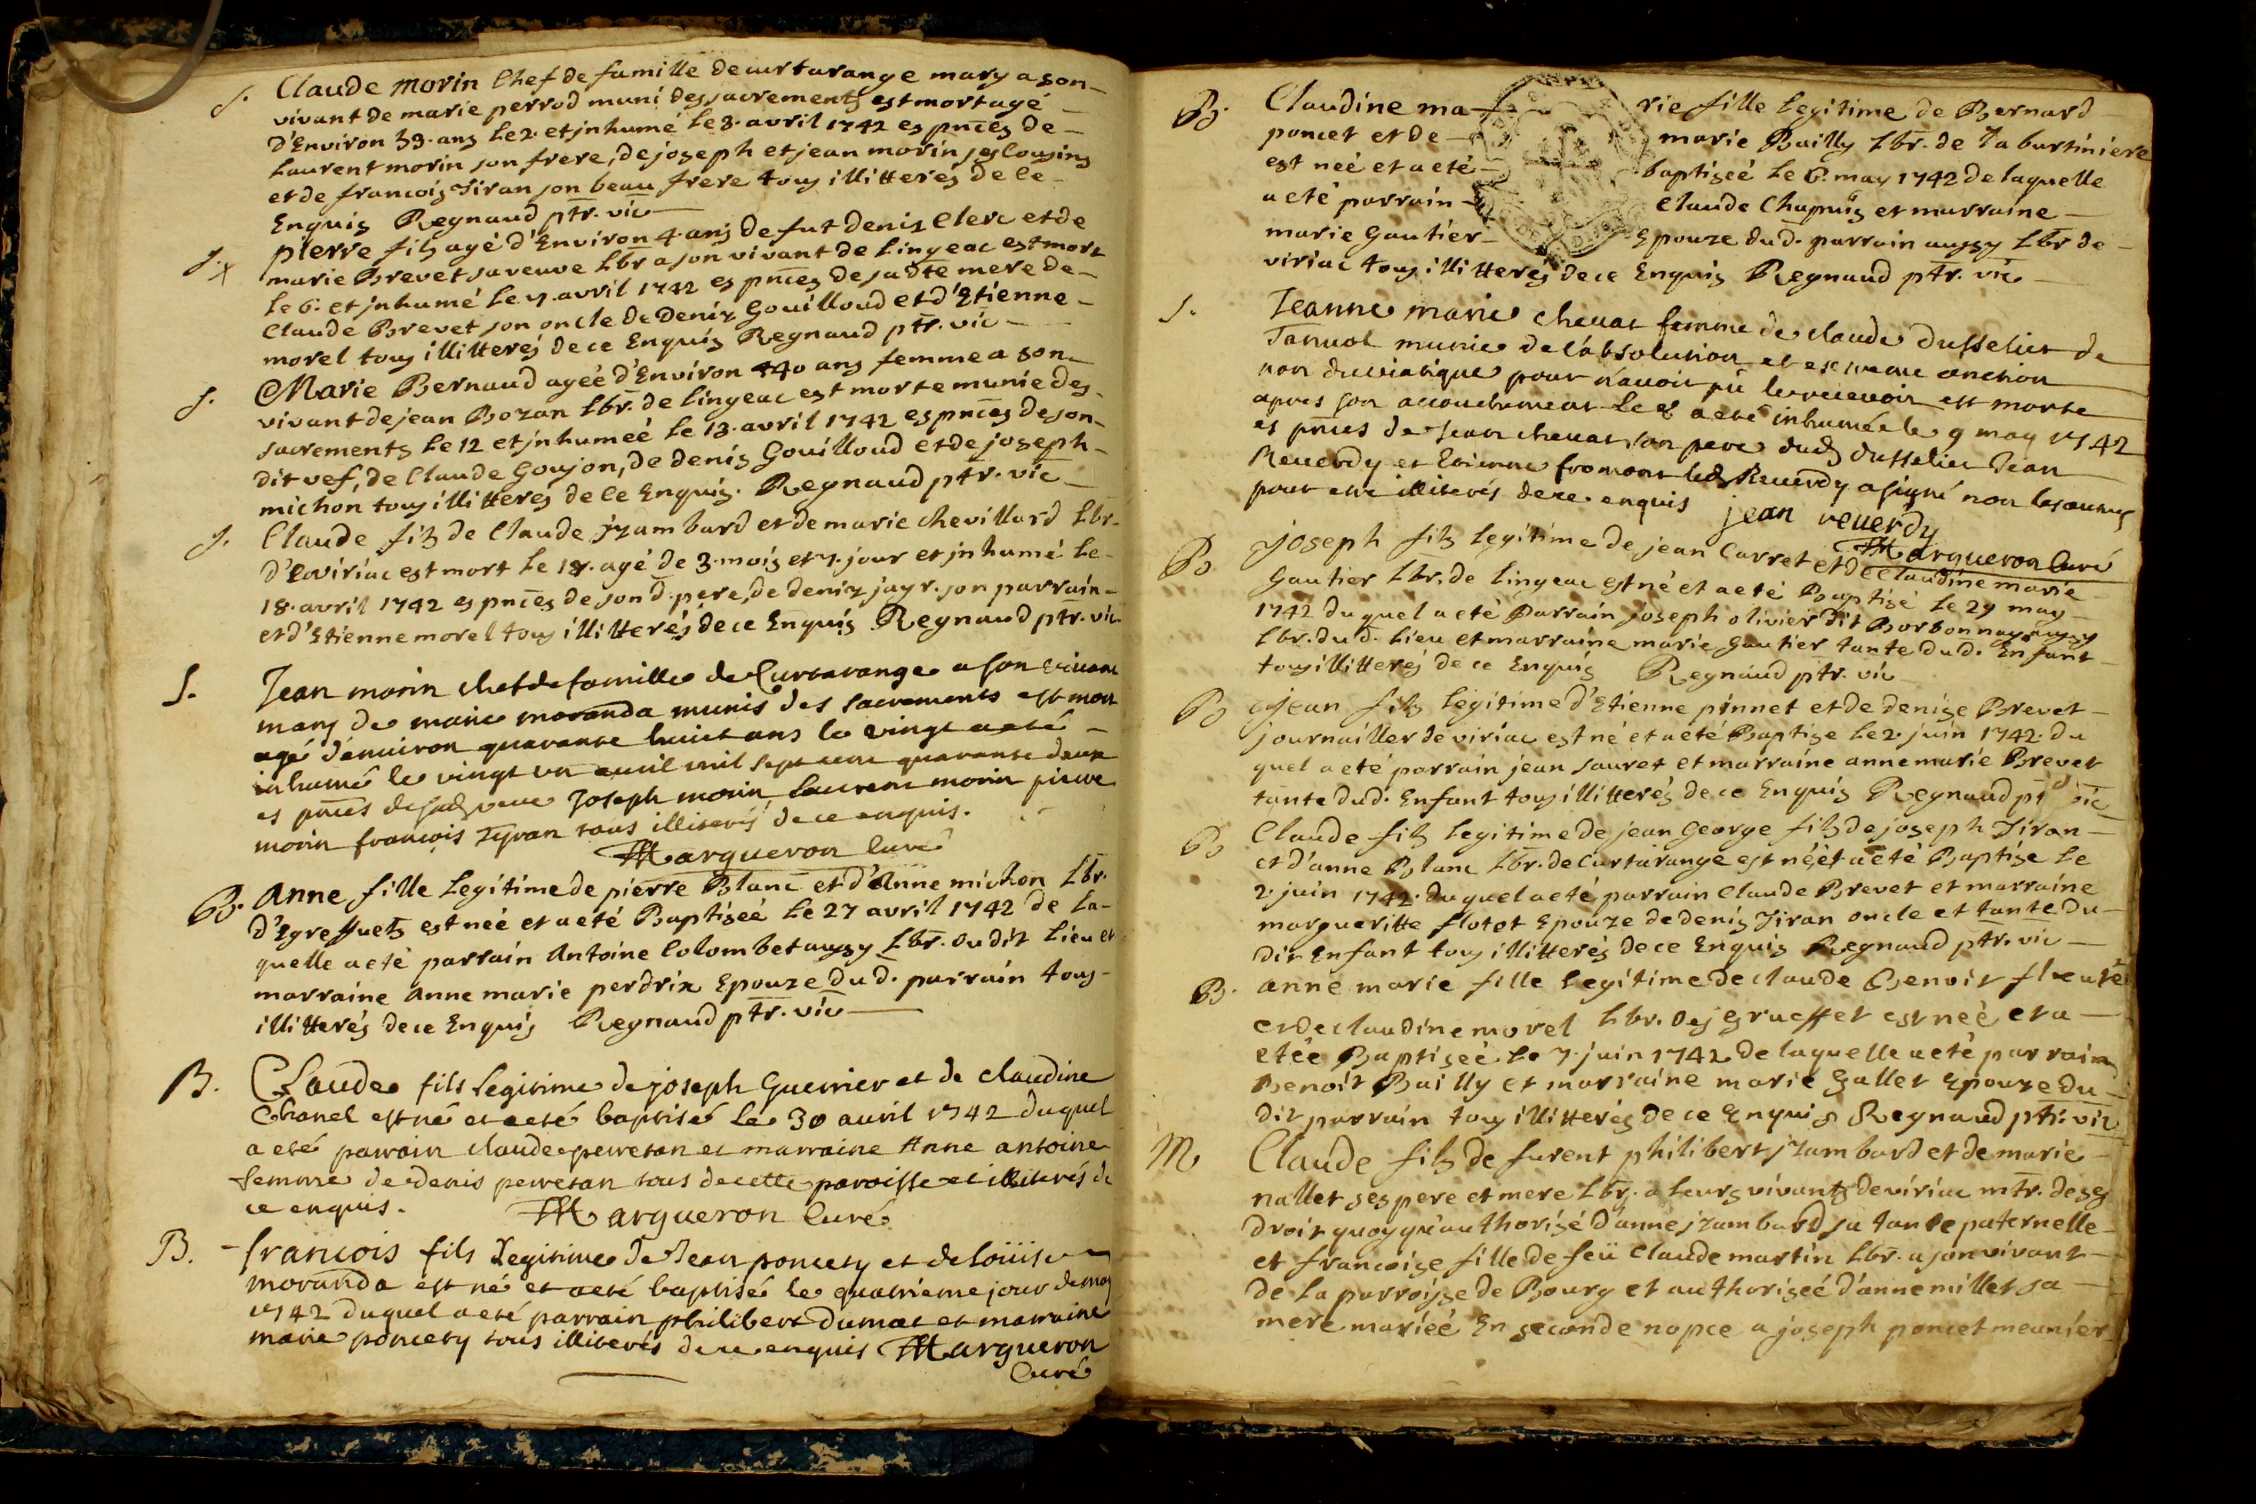 S. Claude morin Chef de famille de curtarange mary a son
vivant de marie perrod muni des sacrements est mort agé
d'Environ 39. ans le 2. et jnhumé le 3. avril 1742 es pnces de
Laurent morin son frere, de joseph et jean morin ses Cousins
et de francois Tiran son beau frere tous illitteres de ce
Enquis Regnaud ptr. vic
S. pierre fils agé d'Environ 4. ans de fut denis Clerc et de
marie Brevet sa veuve Lbr a son vivant de Lingeac est mort
le 6. et jnhumé le 7. avril 1742 es pnces de sa dte mere de
Claude Brevet son oncle de Denis Gouilloud et d'Etienne
morel tous illitterés de ce Enquis Regnaud ptr. vic
S. Marie Bernaud agée d'Environ 40 ans femme a son
vivant de jean Bozan Lbr. de Lingeac est morte munie des
sacrements le 12 et jnhumeé le 13. avril 1742 es pnces de son
dit vef, de Claude Goujon, de denis Gouilloud et de joseph
michon tous illitteres de ce Enquis. Regnaud ptr. vic
S. Claude fils de Claude jzambard et de marie chevillard Lbr.
de viriac est mort le 18. agé de 3. mois et 7. jour et jnhumé le
18. avril 1742 es pnces de son d. pere, de denis jayr. son parrain
et d'Etienne morel tous illitterés de ce Enquis Regnaud ptr. vic
S. Jean morin chef de famille de Curtarange a son vivant
mary de marie moranda munis des sacrements est mort
agé d'environ quarante huict ans le vingt a eté
inhumé le vingt un avril mil sept cent quarante deux
es pnces de sad veuve Joseph morin Laurent morin pierre
morin françois Tyran tous illiterés de ce enquis.
Margueron Curé
B. Anne fille Legitime de pierre Blanc et d'Anne michon Lbr.
d'Egreffuets est neé et a eté Baptiseé le 27 avril 1742 de La-
quelle a eté parrain Antoine Colombet aussy Lbr. dudit Lieu et
marraine Anne marie perdrix Epouze dud. parrain tous
illitterés de ce Enquis Regnaud ptr. vic
B. Claude fils Legitime de joseph Guerrier et de claudine
Chanel est né et a eté baptisé le 30 avril 1742 duquel
a eté parrain claude perretan et marraine Anne antoine
femme de denis perretan tous de cette paroisse et illiterés de
ce enquis. Margueron Curé
B. francois fils Legitime de Jean poncety et de Loüise
moranda est né et a eté baptisé le quatrieme jour de may
1742 duquel a eté parrain philibert Dumas et marraine
marie poncety tous illiterés de ce enquis Margueron
Curé
B. Claudine marie fille Legitime de Bernard
poncet et de marie Bailly Lbr. de la burtiniere
est neé et a eté baptiseé le 6. may 1742 de laquelle
a eté parrain Claude Chapuis et marraine
marie Gautier Epouze dud. parrain aussy Lbr de
viriac tous illitteres de ce Enquis Regnaud ptr. vic
S. Jeanne marie chevat femme de claude Dusselier de
Tanvol munie de l'absolution et extreme onction
non du viatique pour n'avoir pû le recevoir est morte
apres son accouchement le 8 a eté inhumée le 9 may 1742
es pnces de jean chevat son pere dud Dusselier Jean
Reverdy et Etienne fromont led Reverdy a signé non les autres
pour etre illiterés de ce enquis jean reverdy
Margueron Curé
B. joseph fils Legitime de jean Carret et de Claudine marie
Gautier Lbr. de Lingeac est né et a eté Baptisé le 29 may
1742 duquel a eté Parrain joseph olivier dit Borbonnay aussy
Lbr. dud. Lieu et marraine marie Gautier tante dud. Enfant
tous illitterés de ce Enquis Regnaud ptr. vic
B. Jean fils Legitime d'Etienne pinnet et de denise Brevet
journailler de viriac est né et a eté Baptise le 2. juin 1742. du
quel a eté parrain jean sauret et marraine anne marie Brevet
tante dud. Enfant tous illitterés de ce Enquis Regnaud ptr vic
B. Claude fils Legitime de jean George fils de joseph Tiran
et d'anne Blanc Lbr. de Curtarange est né et a eté Baptise le
2. juin 1742. duquel a eté parrain Claude Brevet et marraine
margueritte flotet Epouze de denis Tiran oncle et tante du
dit Enfant tous illitterés de ce Enquis Regnaud ptr. vic
B. anne marie fille Legitime de claude Benoit
et de claudine morel Lbr. des est neé et a
etée Baptiseé le 7. juin 1742 de laquelle a eté parrain
Benoit Bailly et marraine marie Gallet Epouze du
dit parrain tous illitterés de ce Enquis Regnaud ptr. vic
M Claude fils de furent philibert jzambard et de marie
nallet ses pere et mere Lbr. a leurs vivants de viriac mtr. de ses
droit quoy qu'authorisé d'anne jzambard sa tante paternelle
et francoise fille de feü Claude martin Lbr. a son vivant
de la parroisse de Bourg et authoriseé d'anne millet sa
mere mariéé En seconde nopce a joseph poncet meunier